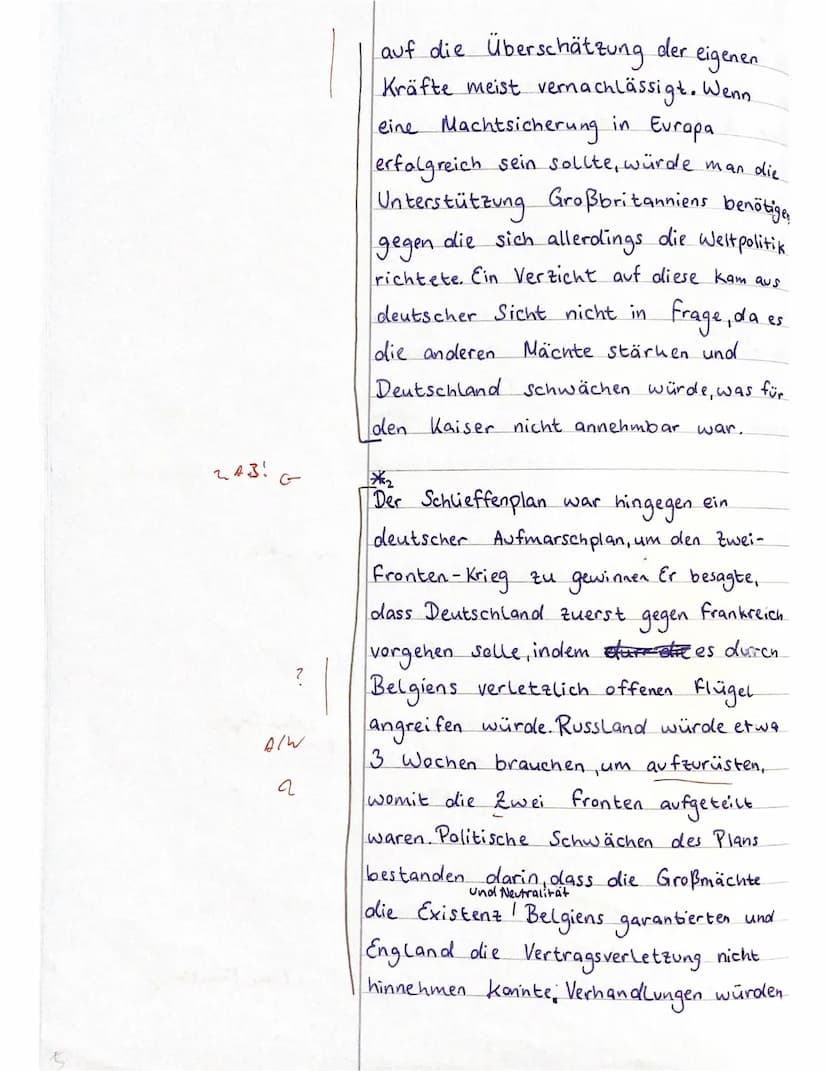 auf die Überschätzung der eigenen
Kräfte meist vernachlässigt. Wenn
eine Machtsicherung in Europa
erfolgreich sein sollte, würde man die
Unterstützung Großbritanniens benötigen,
gegen die sich allerdings die Weltpolitik
richtete. Ein Verzicht auf diese kam aus
deutscher Sicht nicht in Frage, da es
die anderen Mächte stärken und
Deutschland schwächen würde, was für
den Kaiser nicht annehmbar war.
2 AB! G
*2
Der Schlieffenplan war hingegen ein
deutscher Aufmarschplan, um den Zwei-
Fronten-Krieg zu gewinnen Er besagte,
dass Deutschland zuerst gegen Frankreich
vorgehen solle, indem es durch
? Belgiens verletzlich offenen Flügel
angreifen würde. Russland würde etwa
A/W 3 Wochen brauchen, um aufzurüsten,
womit die Zwei Fronten aufgeteilt
waren. Politische Schwächen des Plans
bestanden darin, dass die Großmächte
und Neutralität
die Existenz Belgiens garantierten und
England die Vertragsverletzung nicht
hinnehmen konnte; Verhandlungen würden
5